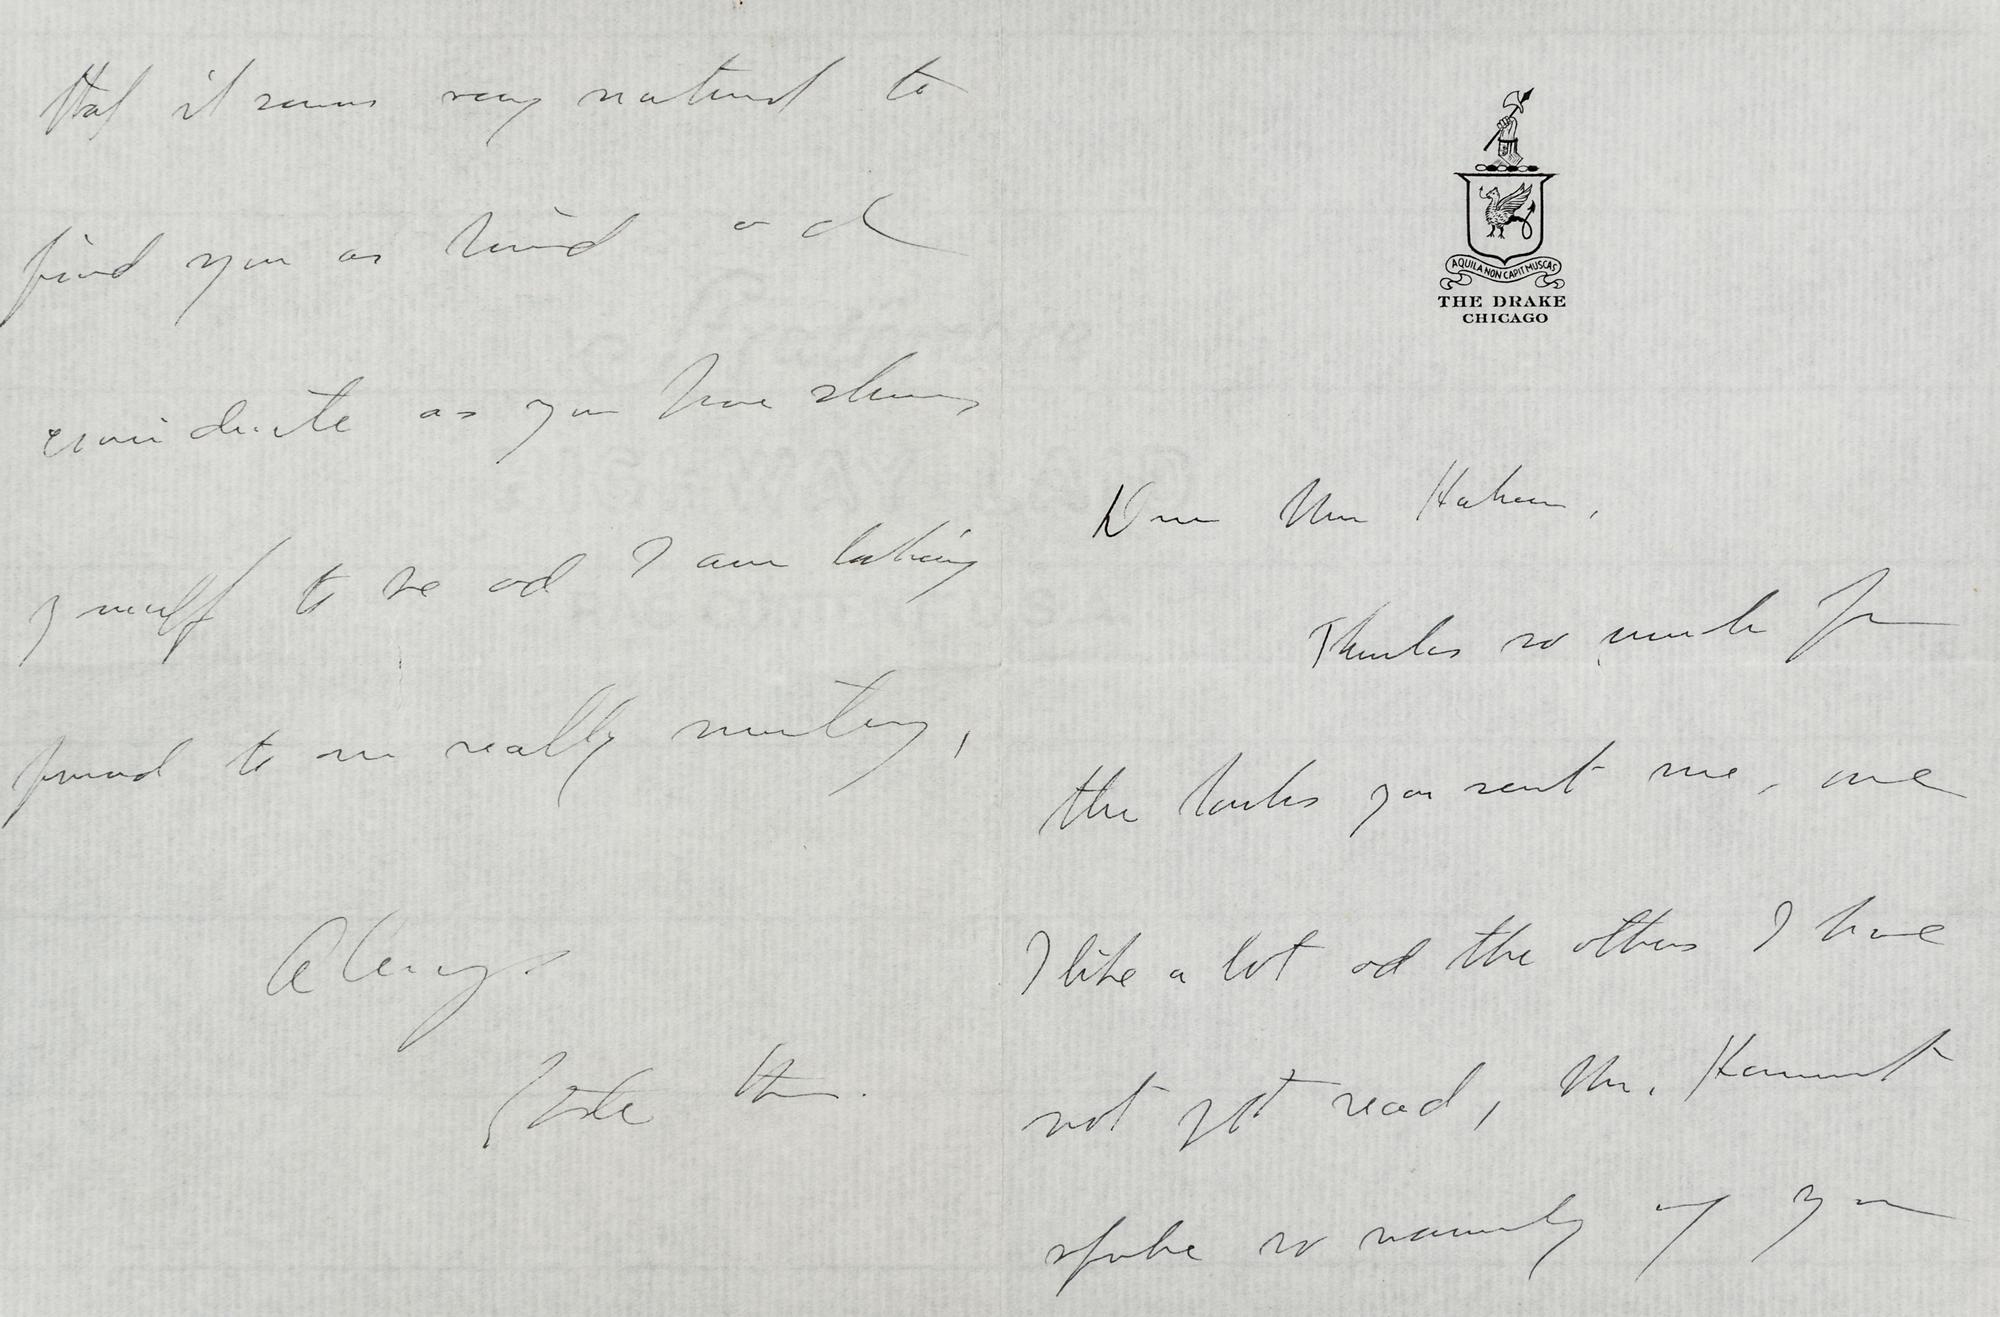 AQUILA NON CAPIT MUSCAS
THE DRAKE
CHICAGO
Dear Mr
Thanks so much for
the books you sent me, one
I like a lot and the others I have
not yet read, Mr.
spoke so warmly of you
that it seems very natural to
find you as kind and
considerate as you have shown
yourself to be and I am looking
forward to our really meeting,
Always